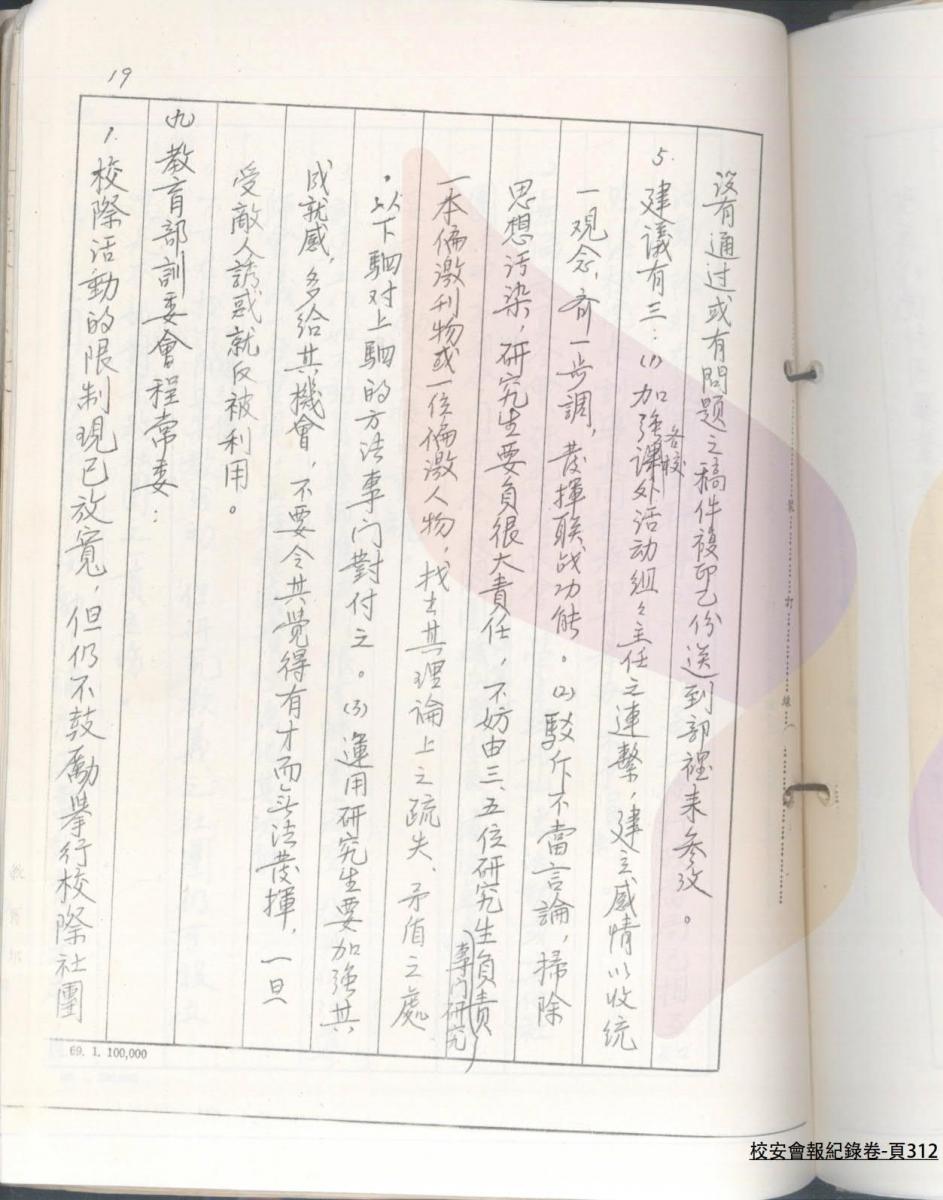 19
没有通过或有問題之稿件複印乙份送到部裡来参攷。
5. 建議有三:(1)加強各校課外活动組々主任之連繫,建立感情以收统
一观念、齐一步調,发揮联战功能。(2)駁斥不當言論,掃除
思想污染,研究生要負很大責任,不妨由三、五位研究生負責專门研究
一本偏激刊物或一位偏激人物,找出其理論上之疏失、矛盾之處
,以下駟对上駟的方法專门對付之。(3)運用研究生要加強其
成就感,多给其機會,不要令其覺得有才而無法发揮,一旦
受敵人誘惑就反被利用。
(九)教育部訓委會程常委:
1. 校際活動的限制現已放寬,但仍不鼓勵舉行校際社團
69. 1. 100,000
裝
訂
線
校安會報紀錄卷-頁312